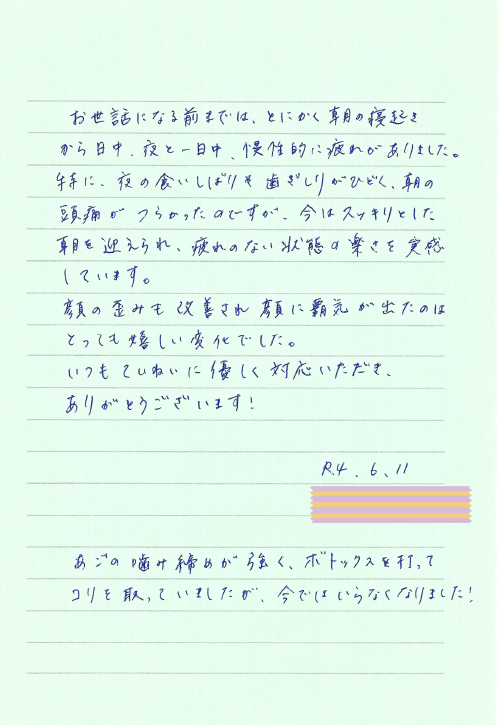 お世話になる前までは、とにかく朝の寝起き
から日中、夜と一日中、慢性的に疲れがありました。
特に、夜の食いしばりや歯ぎしりがひどく、朝の
頭痛がつらかったのですが、今はスッキリとした
朝を迎えられ、疲れのない状態の楽さを実感
しています。
顔の歪みも改善され顔に覇気が出たのは
とっても嬉しい変化でした。
いつもていねいに優しく対応いただき、
ありがとうございます!
R.4.6.11
あごの噛み締めが強く、ボトックスを打って
コリを取っていましたが、今ではいらなくなりました!